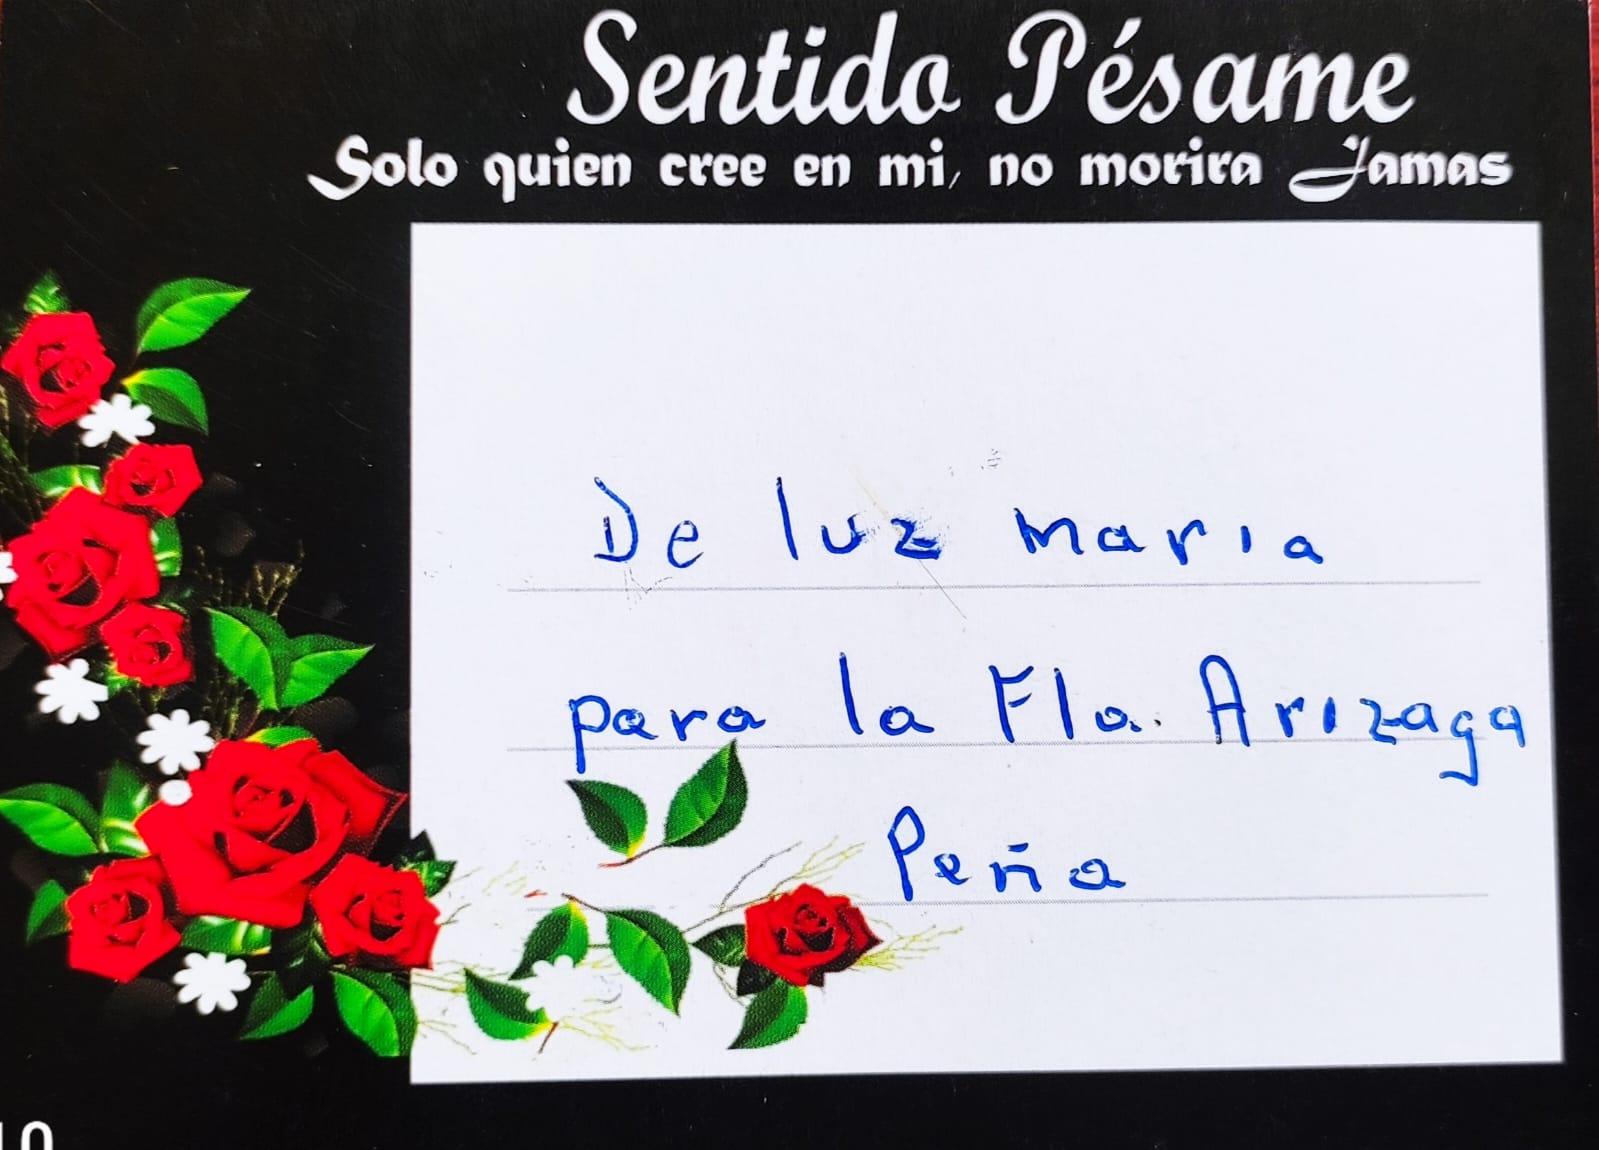 Sentido Pésame
Solo quien cree en mi, no morira Jamas
De luz maria
para la Fla. Arizaga
Peña
10